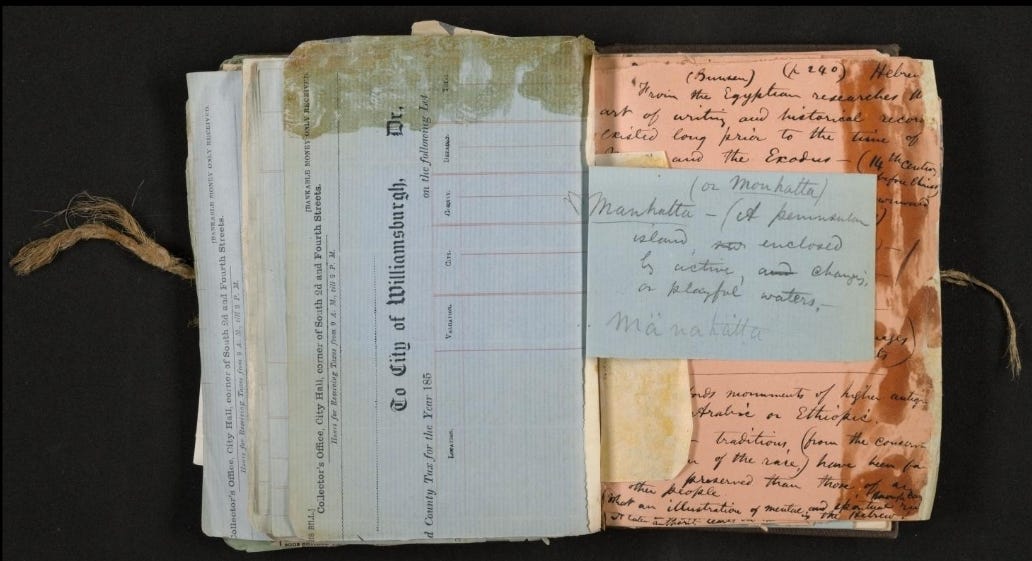 [BANKABLE MONEY ONLY RECEIVED.
Collector's Office, City Hall, corner of South 2d and Fourth Streets.
Hours for Receiving Taxes from 9 A. M., till 2 P. M.
[BANKABLE MONEY ONLY RECEIVED.
Collector's Office, City Hall, corner of South 2d and Fourth Streets.
Hours for Receiving Taxes from 9 A. M., till 2 P. M.
To City of Williamsburgh, Dr.,
d County Tax for the Year 185 on the following Lot
Location. Valuation. City. County.
(Bunsen) (p 240) Hebrew
From the Egyptian researches the
art of writing and historical record
existed long prior to the time of
and the Exodus — (14th century
before Christ
(or Monhatta)
Manhatta — (A peninsular
island enclosed
by active, and changing,
or playful waters,—
Mānahātta
monuments of higher
Arabic or Ethiopic.
— traditions, (from the
of the race,) have been
preserved than those of
other people.
What an illustration of mental and spiritual
the Hebrew